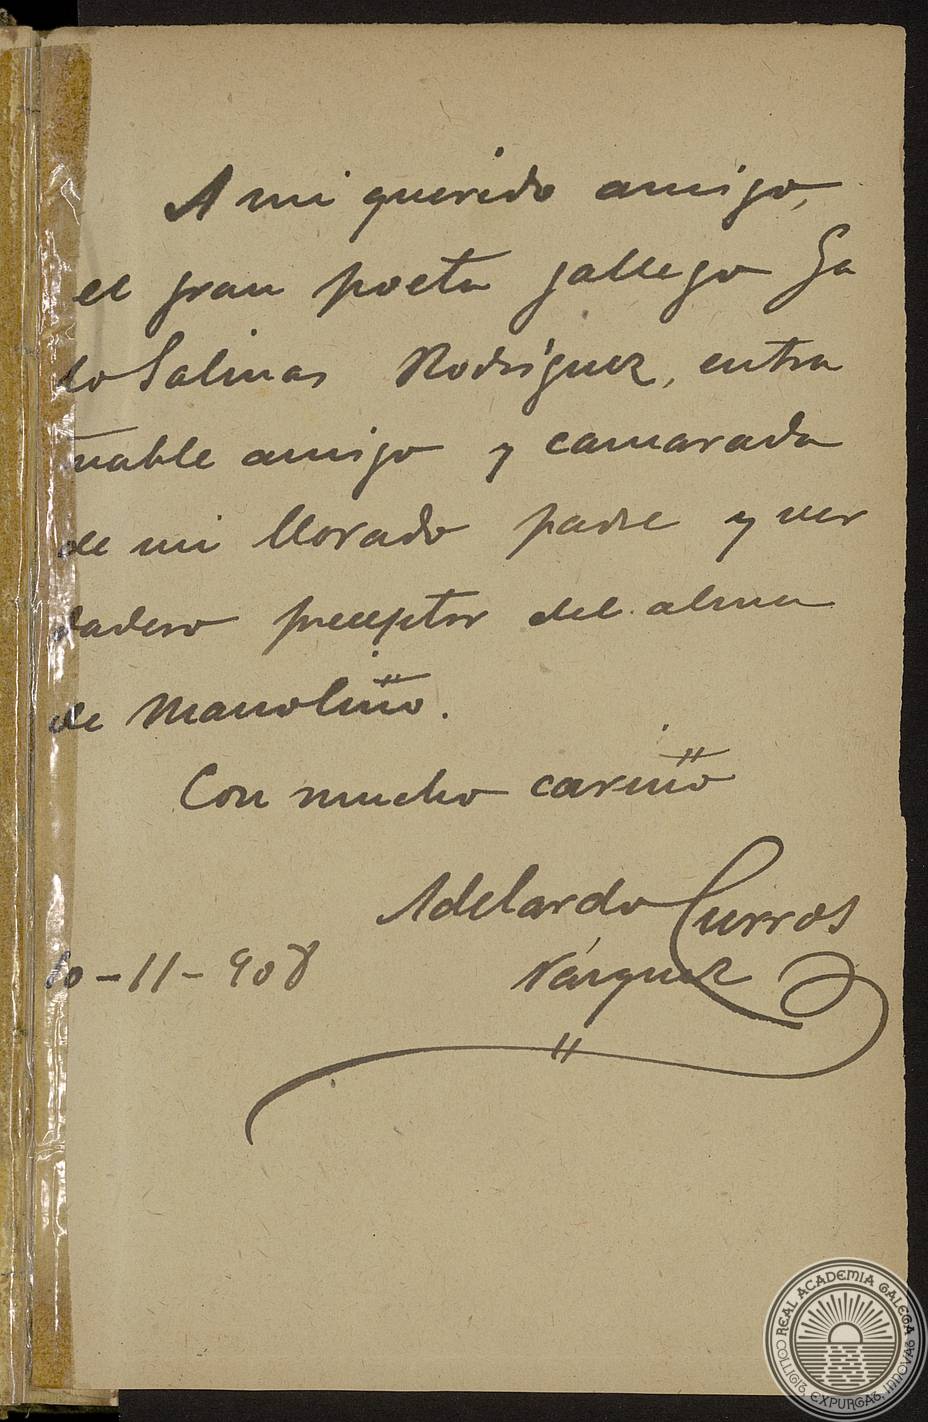 A mi querido amigo,
el gran poeta gallego Ga
lo Salinas Rodríguez, entra
ñable amigo y camarada
de mi llorado padre y ver
dadero preceptor del alma
de Manoliño.
Con mucho cariño
Adelardo Curros
Vázquez
10-11-908
REAL ACADEMIA GALEGA
COLLIGIT, EXPURGAT, INNOVAT